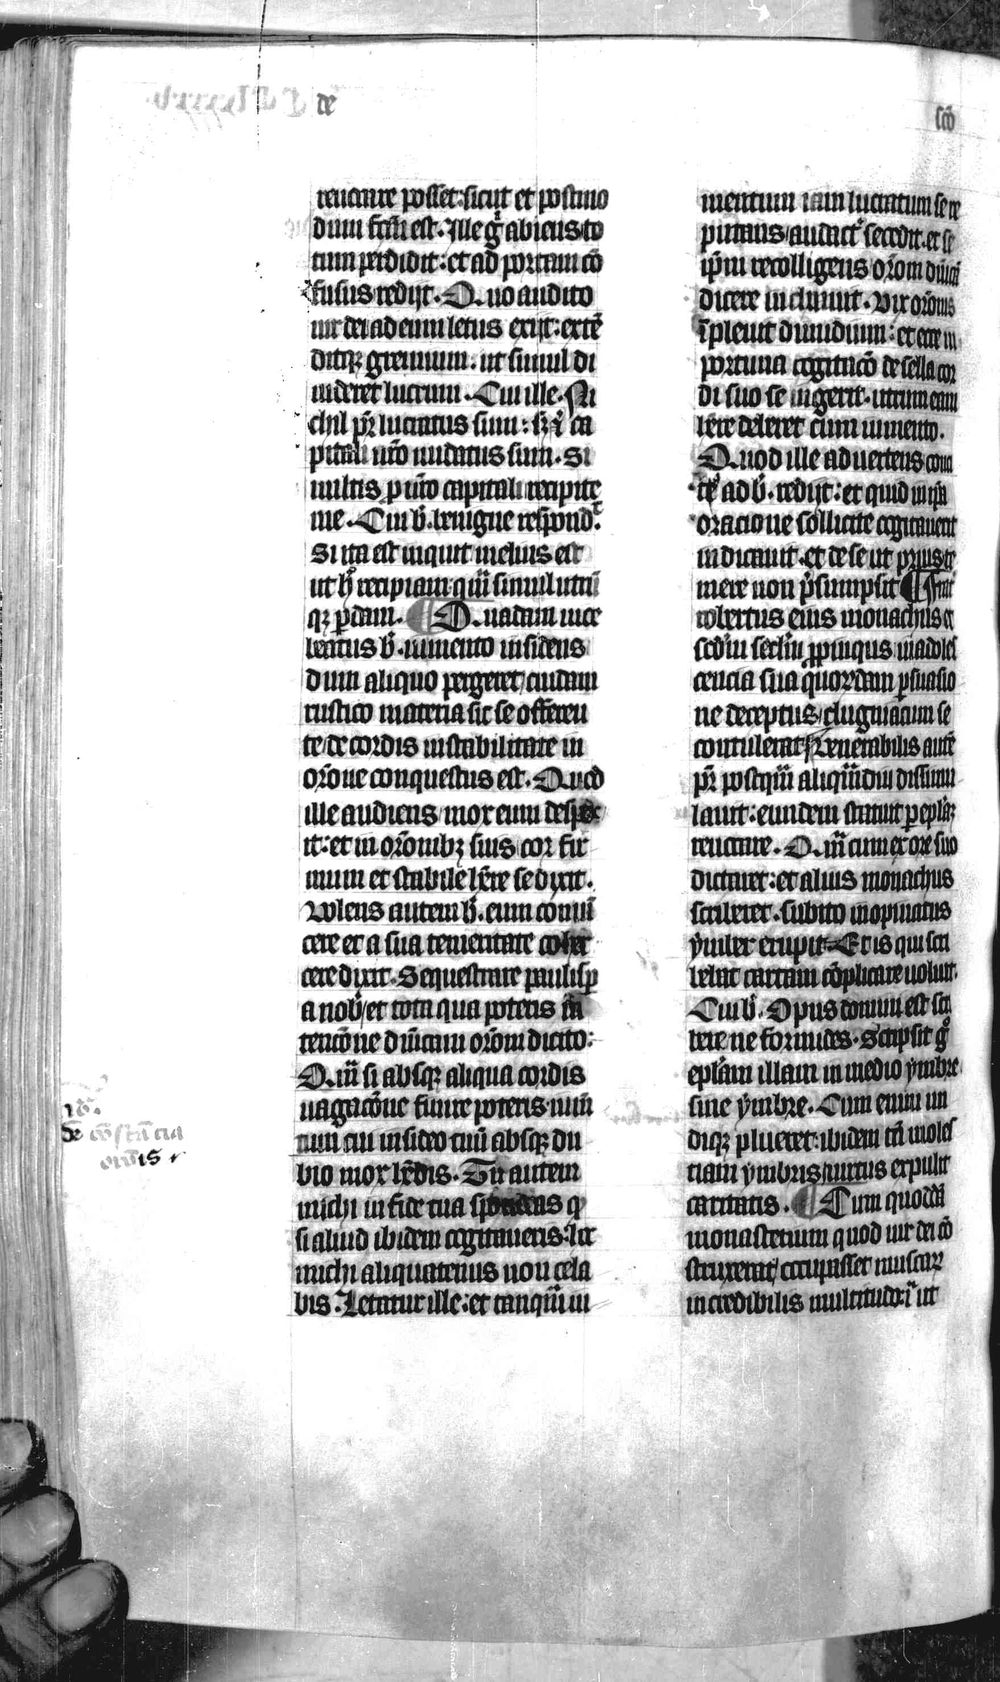 de
sco
reuocare posset: sicut et postmo
dum fcm̄ est. Ille g̊ abiens to
tum perdidit: et ad portam cō
fusus redijt. Quo audito
uir dei ad eum letus exijt: extē
ditqꝫ gremium. ut simul di
uideret lucrum. Cui ille. Ni
chil pr̄ lucratus sum: sꝫ ca
pitali ur̄o nudatus sum. Si
uultis pro ur̄o capitali recipite
me. Cui b̾. benigne respond̾.
Si ita est inquit melius est
ut h̊ recipiam qm̄ simul utrū
qꝫ ꝑdam. ¶ Quadam uice
beatus b̾. iumento insidens
dum aliquo pergeret/ cuidam
rustico materia sic se offeren
te/ de cordis instabilitate in
orōne conquestus est. Quod
ille audiens/ mox eum despex
it: et in orōnibꝫ suis cor fir
mum et stabile hr̄e se dixit.
Volens autem b̾. eum conuī
cere et a sua temeritate coher
cere dixit. Sequestrare paulisꝑ
a nob̾/ et tota qua poteris in
tencōne dn̄icam orōm dicito:
Qm̄ si absqꝫ aliqua cordis
uagacōne finire poteris. num̄
tum cui insideo tuū absqꝫ du
bio mox hēbis. Tu autem
michi in fide tua spondeas ꝙ
si aliud ibidem cogitaueris. hoc
michi aliquatenus non cela
bis. Letatur ille: et tanqm̄ iu
de cōstācia
orōnis
mentum iam lucratum se re
putans/ audact̾ secedit. et se
ip̄m recolligens orōm dn̄icā
dicere inchoauit. Vix orōnis
īpleuit dimidium: et ecce in
portuna cogitacō de sella cor
di suo se ingerit. utrum eam
hēre deberet cum iumento.
Quod ille aduertens conci
te ad b̾. redijt: et quid in ip̄a
oracione sollicite cogitauerit
indicauit. et de se ut prius te
mere non p̄sumpsit ¶ Frat̾
robertus eius monachus et
scd̾m sectm̄ ꝓpinquus in adoles
cencia sua quorundam ꝑsuasio
ne deceptus/ clugniacum se
contulerat. Venerabilis autē
pr̄ postqm̄ aliqm̄diu dissimu
lauit: eundem statuit ꝑ eplaꝫ
reuocare. Qm̄ cum ex ore suo
dictaret: et alius monachus
scriberet. subito inopinatus
ymber erupit. Et is qui scri
bebat cartam cōplicare uoluit.
Cui b̾. Opus domini est scri
bere ne formides. Scripsit g̊
eplām illam in medio ymbre
sine ymbre. Cum enim un
diqꝫ plueret: ibidem tn̄ moles
tiam ymbris uirtus expulit
caritatis. ¶ Cum quoddā
monasterium quod uir dei cō
struxerat/ occupasset muscaꝝ
incredibilis multitudo: ī ut